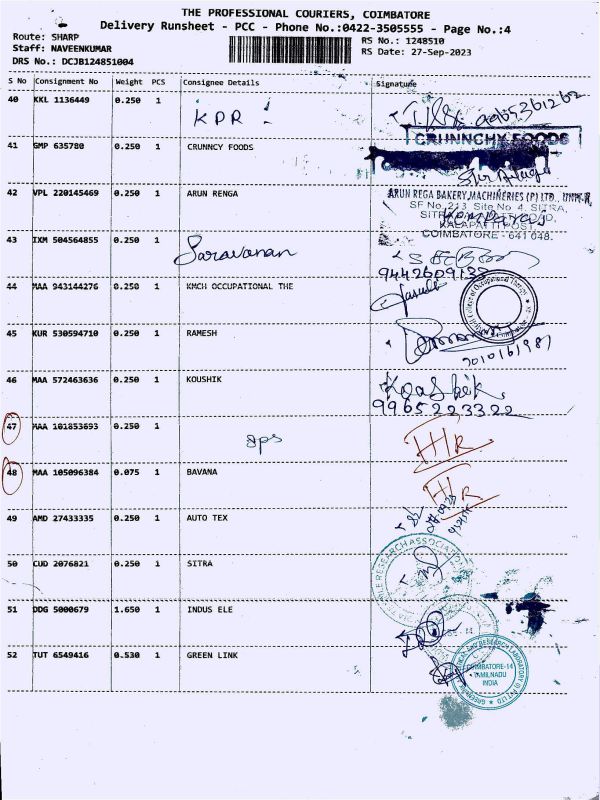 THE PROFESSIONAL COURIERS, COIMBATORE
Delivery Runsheet - PCC - Phone No.:0422-3505555 - Page No.:4
Route: SHARP
Staff: NAVEENKUMAR
DRS No.: DCJB124851004
RS No.: 1248510
RS Date: 27-Sep-2023
S No Consignment No Weight PCS Consignee Details Signature
40 KKL 1136449 0.250 1 KPR
41 GMP 635780 0.250 1 CRUNNCY FOODS
CRUNNCHY FOODS
42 VPL 220145469 0.250 1 ARUN RENGA
ARUN REGA BAKERY MACHINERIES (P) LTD.,
SF No. 213, Site No. 4, SITRA,
KALAPATTI POST,
COIMBATORE - 641 048.
43 IXM 504564855 0.250 1 Saravanan
9442609138
44 MAA 943144276 0.250 1 KMCH OCCUPATIONAL THE
College of Occupational Therapy
45 KUR 530594710 0.250 1 RAMESH
46 MAA 572463636 0.250 1 KOUSHIK Koushik
9965223322
47 MAA 101853693 0.250 1 gps HR
48 MAA 105096384 0.075 1 BAVANA HR
49 AMD 27433335 0.250 1 AUTO TEX
50 CUD 2076821 0.250 1 SITRA
RESEARCH ASSOCIATION
51 DDG 5000679 1.650 1 INDUS ELE
52 TUT 6549416 0.530 1 GREEN LINK
COIMBATORE-14
TAMILNADU
INDIA